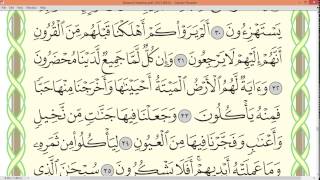 يَسْتَهْزِءُونَ ٣٠ أَلَمْ يَرَوْا۟ كَمْ أَهْلَكْنَا قَبْلَهُم مِّنَ ٱلْقُرُونِ
أَنَّهُمْ إِلَيْهِمْ لَا يَرْجِعُونَ ٣١ وَإِن كُلٌّ لَّمَّا جَمِيعٌ لَّدَيْنَا مُحْضَرُونَ
٣٢ وَءَايَةٌ لَّهُمُ ٱلْأَرْضُ ٱلْمَيْتَةُ أَحْيَيْنَٰهَا وَأَخْرَجْنَا مِنْهَا حَبًّا
فَمِنْهُ يَأْكُلُونَ ٣٣ وَجَعَلْنَا فِيهَا جَنَّٰتٍ مِّن نَّخِيلٍ
وَأَعْنَٰبٍ وَفَجَّرْنَا فِيهَا مِنَ ٱلْعُيُونِ ٣٤ لِيَأْكُلُوا۟ مِن ثَمَرِهِۦ
وَمَا عَمِلَتْهُ أَيْدِيهِمْ أَفَلَا يَشْكُرُونَ ٣٥ سُبْحَٰنَ ٱلَّذِى